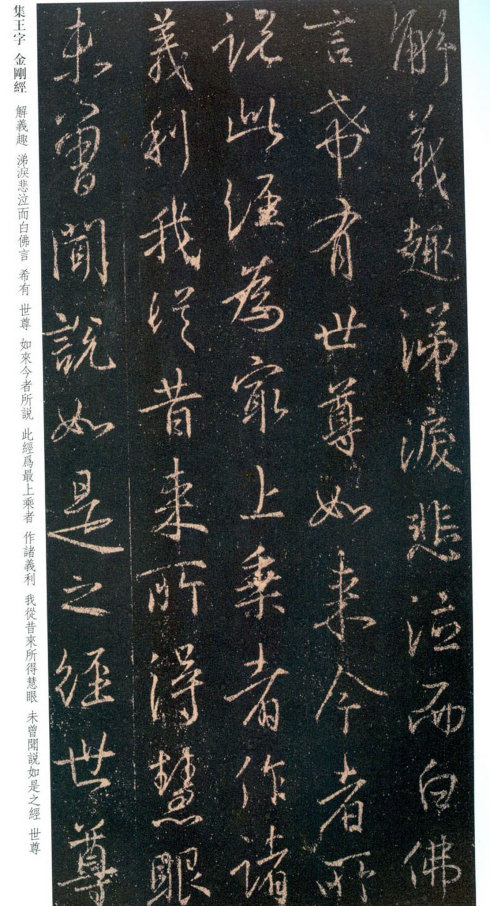 解義趣涕淚悲泣而白佛
言希有世尊如来今者所
説此經為冣上乗者作諸
義利我従昔来所得慧眼
未曽聞說如是之經世尊
集王字 金剛經 解義趣 涕淚悲泣而白佛言 希有 世尊 如來今者所説 此經爲最上乘者 作諸義利 我從昔來所得慧眼 未曾聞説如是之經 世尊